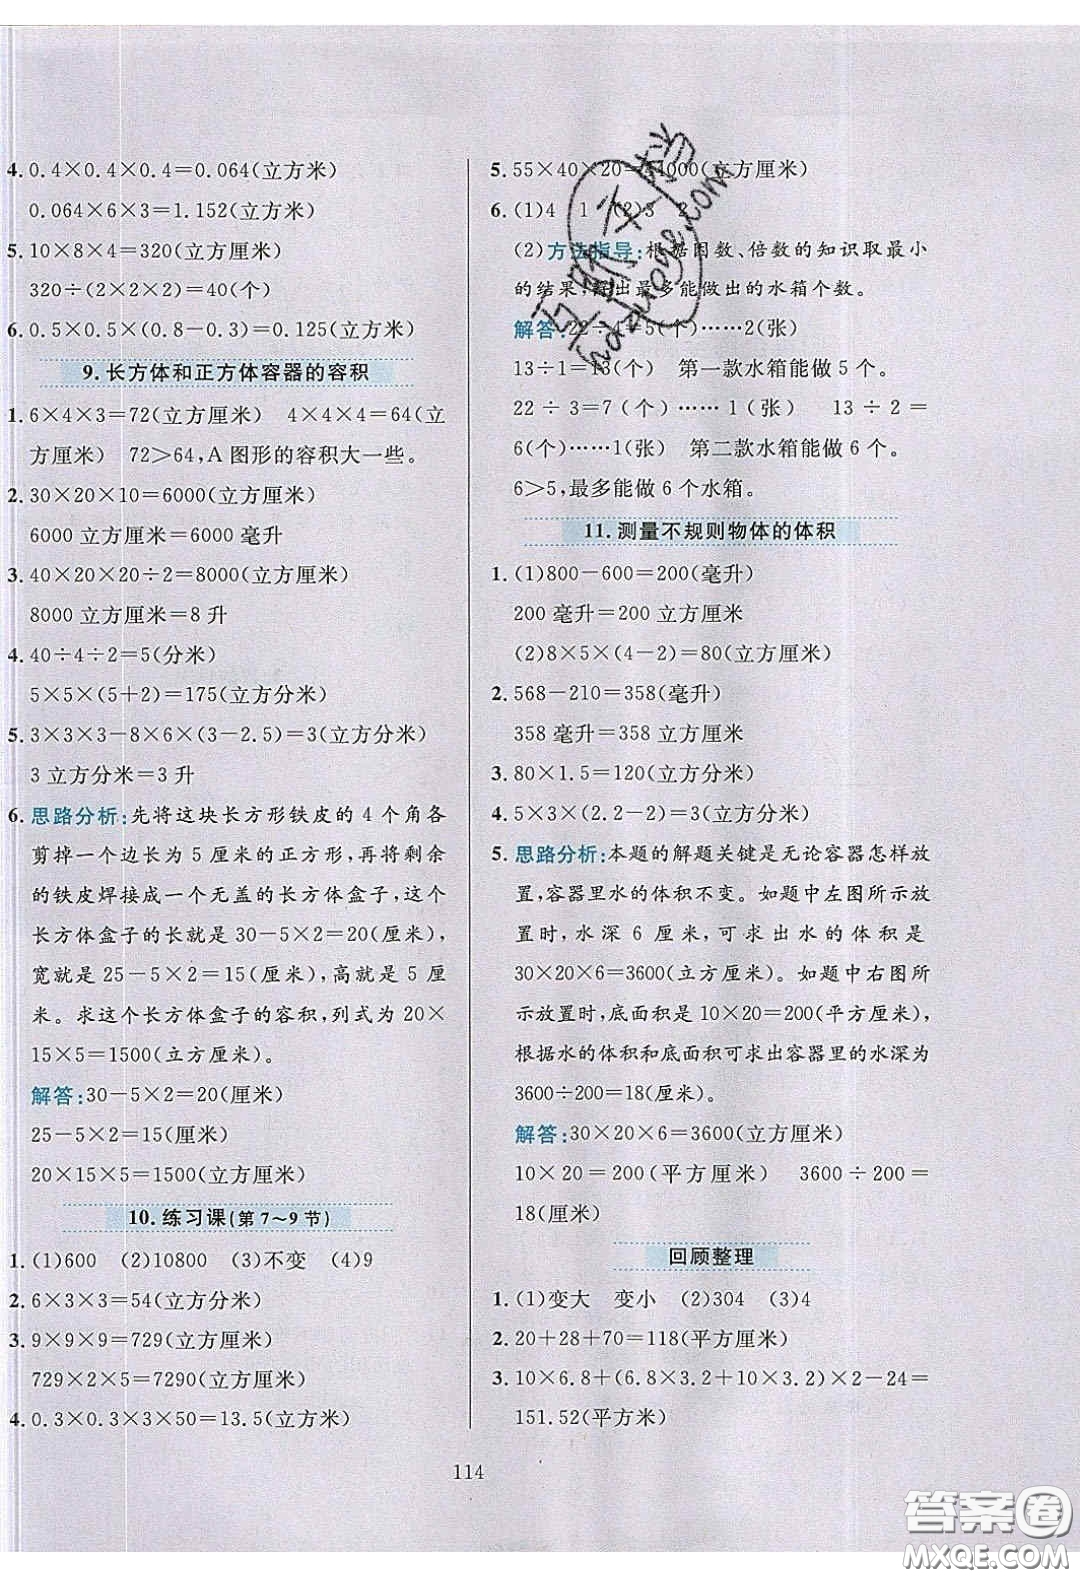 4. 0.4×0.4×0.4=0.064(立方米)
0.064×6×3=1.152(立方米)
5. 10×8×4=320(立方厘米)
320÷(2×2×2)=40(个)
6. 0.5×0.5×(0.8-0.3)=0.125(立方米)
9. 长方体和正方体容器的容积
1. 6×4×3=72(立方厘米) 4×4×4=64(立
方厘米) 72>64,A图形的容积大一些。
2. 30×20×10=6000(立方厘米)
6000立方厘米=6000毫升
3. 40×20×20÷2=8000(立方厘米)
8000立方厘米=8升
4. 40÷4÷2=5(分米)
5×5×(5+2)=175(立方分米)
5. 3×3×3-8×6×(3-2.5)=3(立方分米)
3立方分米=3升
6. 思路分析:先将这块长方形铁皮的4个角各
剪掉一个边长为5厘米的正方形,再将剩余
的铁皮焊接成一个无盖的长方体盒子,这个
长方体盒子的长就是30-5×2=20(厘米),
宽就是25-5×2=15(厘米),高就是5厘
米。求这个长方体盒子的容积,列式为20×
15×5=1500(立方厘米)。
解答:30-5×2=20(厘米)
25-5×2=15(厘米)
20×15×5=1500(立方厘米)
10. 练习课(第7~9节)
1. (1)600 (2)10800 (3)不变 (4)9
2. 6×3×3=54(立方分米)
3. 9×9×9=729(立方厘米)
729×2×5=7290(立方厘米)
4. 0.3×0.3×3×50=13.5(立方米)
5. 55×40×20=44000(立方厘米)
6. (1)4 1 (2)3 2
(2)方法指导:根据因数、倍数的知识取最小
的结果,得出最多能做出的水箱个数。
解答:22÷4=5(个)……2(张)
13÷1=13(个) 第一款水箱能做5个。
22÷3=7(个)……1(张) 13÷2=
6(个)……1(张) 第二款水箱能做6个。
6>5,最多能做6个水箱。
11. 测量不规则物体的体积
1. (1)800-600=200(毫升)
200毫升=200立方厘米
(2)8×5×(4-2)=80(立方厘米)
2. 568-210=358(毫升)
358毫升=358立方厘米
3. 80×1.5=120(立方分米)
4. 5×3×(2.2-2)=3(立方分米)
5. 思路分析:本题的解题关键是无论容器怎样放
置,容器里水的体积不变。如题中左图所示放
置时,水深6厘米,可求出水的体积是
30×20×6=3600(立方厘米)。如题中右图所
示放置时,底面积是10×20=200(平方厘米),
根据水的体积和底面积可求出容器里的水深为
3600÷200=18(厘米)。
解答:30×20×6=3600(立方厘米)
10×20=200(平方厘米) 3600÷200=
18(厘米)
回顾整理
1. (1)变大 变小 (2)304 (3)4
2. 20+28+70=118(平方厘米)
3. 10×6.8+(6.8×3.2+10×3.2)×2-24=
151.52(平方米)
114
答案圈
MXQE.COM